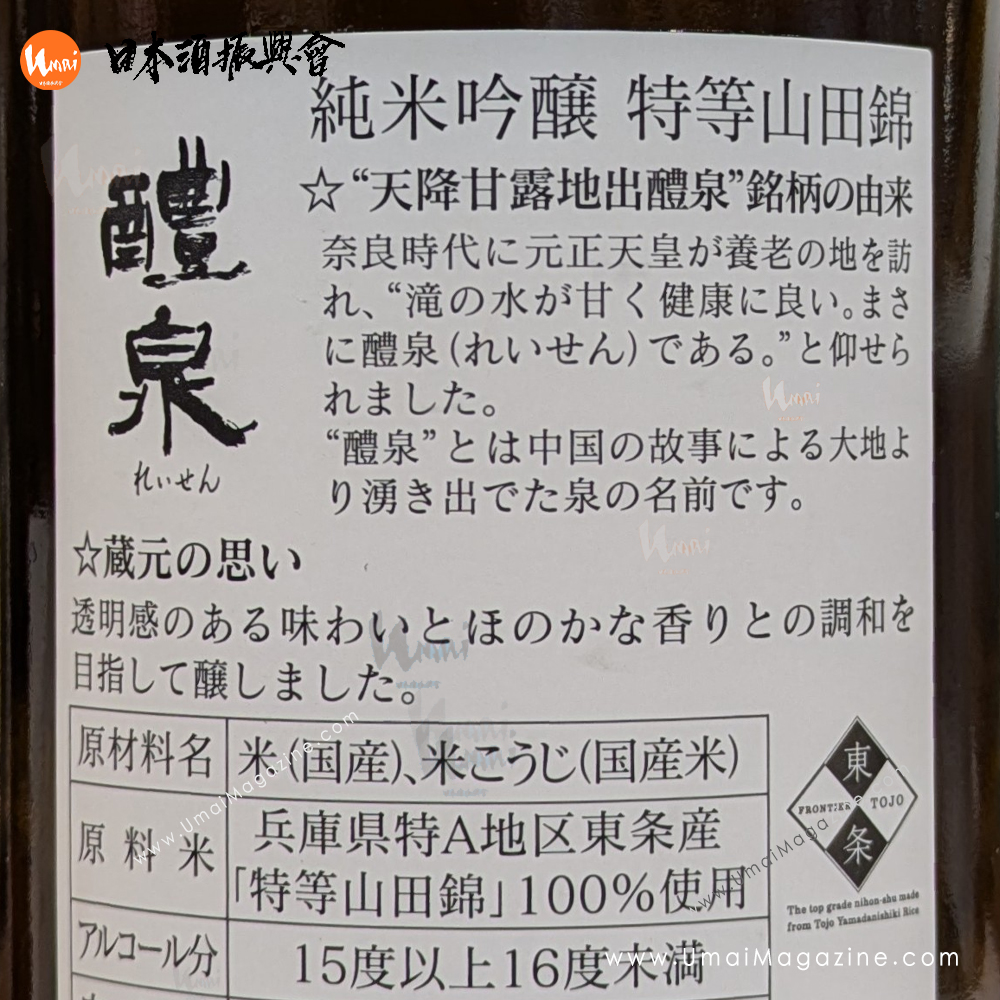 Umai
日本酒振興會
純米吟醸 特等山田錦
醴泉
れいせん
☆“天降甘露地出醴泉”銘柄の由来
奈良時代に元正天皇が養老の地を訪
れ、“滝の水が甘く健康に良い。まさ
に醴泉(れいせん)である。”と仰せら
れました。
“醴泉”とは中国の故事による大地よ
り湧き出でた泉の名前です。
☆蔵元の思い
透明感のある味わいとほのかな香りとの調和を
目指して醸しました。
原材料名 米(国産)、米こうじ(国産米)
原料米 兵庫県特A地区東条産
「特等山田錦」100%使用
アルコール分 15度以上16度未満
東
FRONTIER TOJO
条
The top grade nihon-shu made
from Tojo Yamadanishiki Rice
www.UmaiMagazine.com
www.UmaiMagazine.com